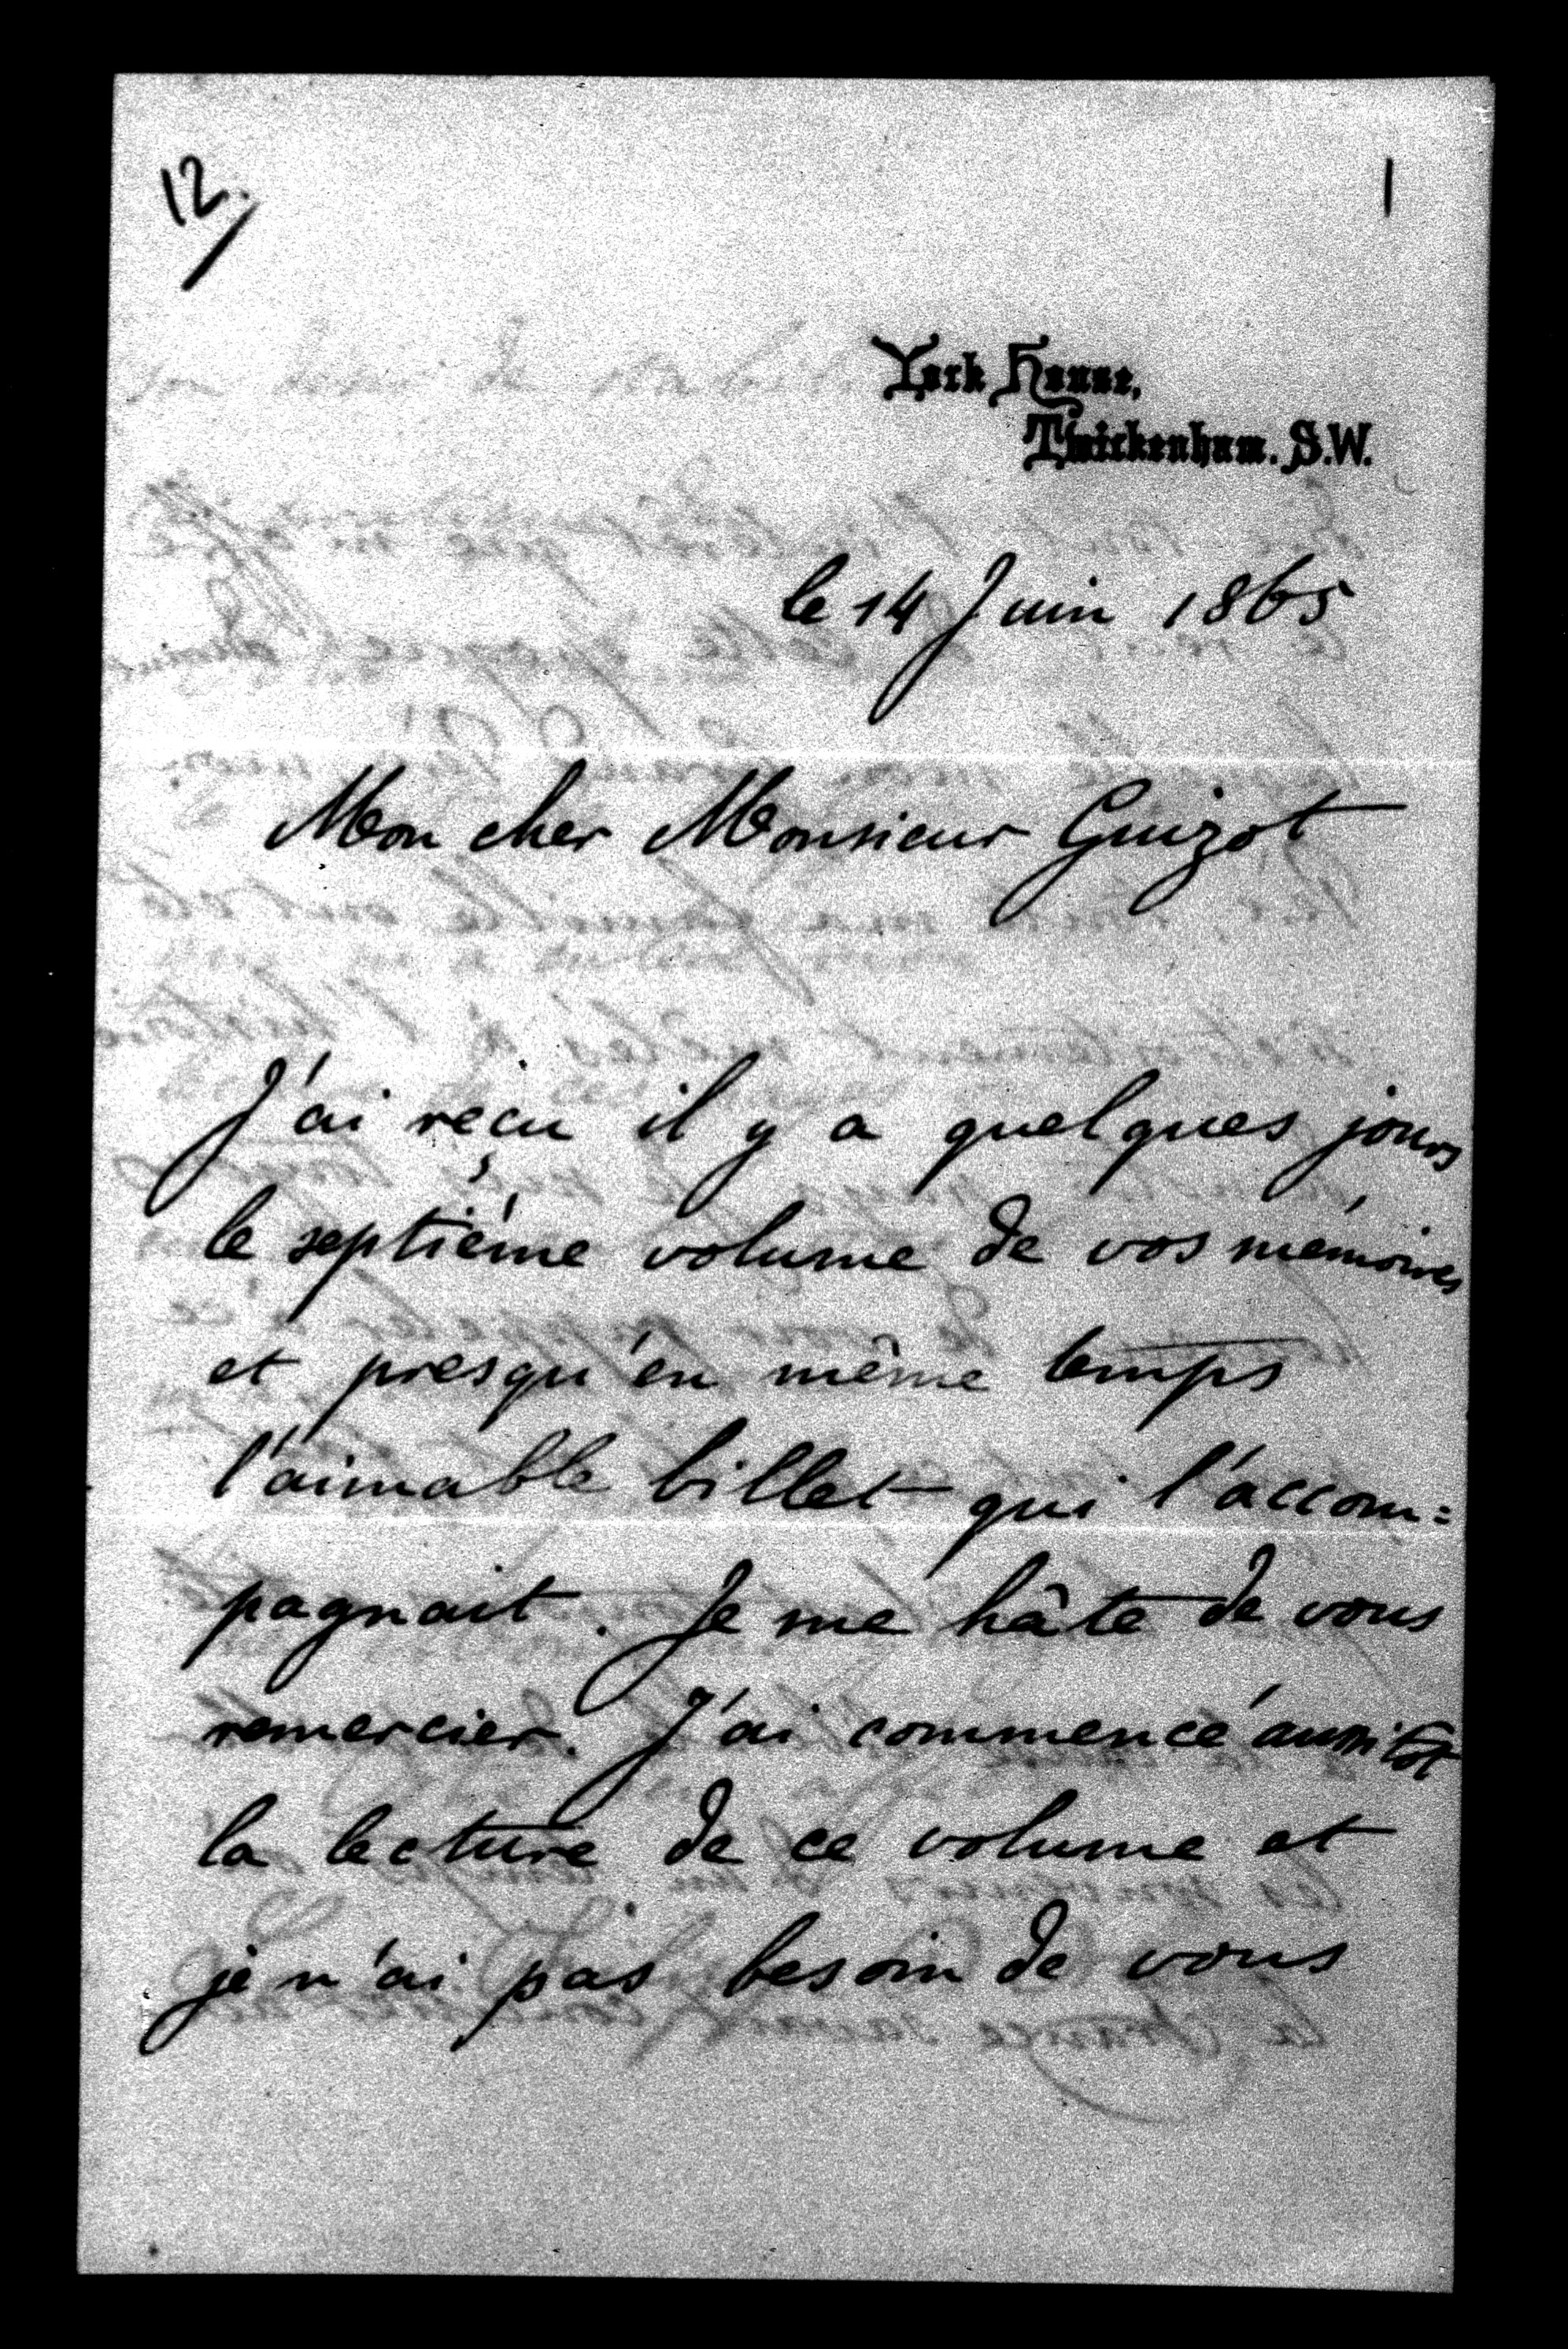 12.
1
York House,
Twickenham. S.W.
le 14 Juin 1865
Mon cher Monsieur Guizot
J'ai reçu il y a quelques jours
le septième volume de vos mémoires
et presqu'en même temps
l'aimable billet qui l'accom=
pagnait. Je me hâte de vous
remercier. J'ai commencé aussitôt
la lecture de ce volume et
je n'ai pas besoin de vous